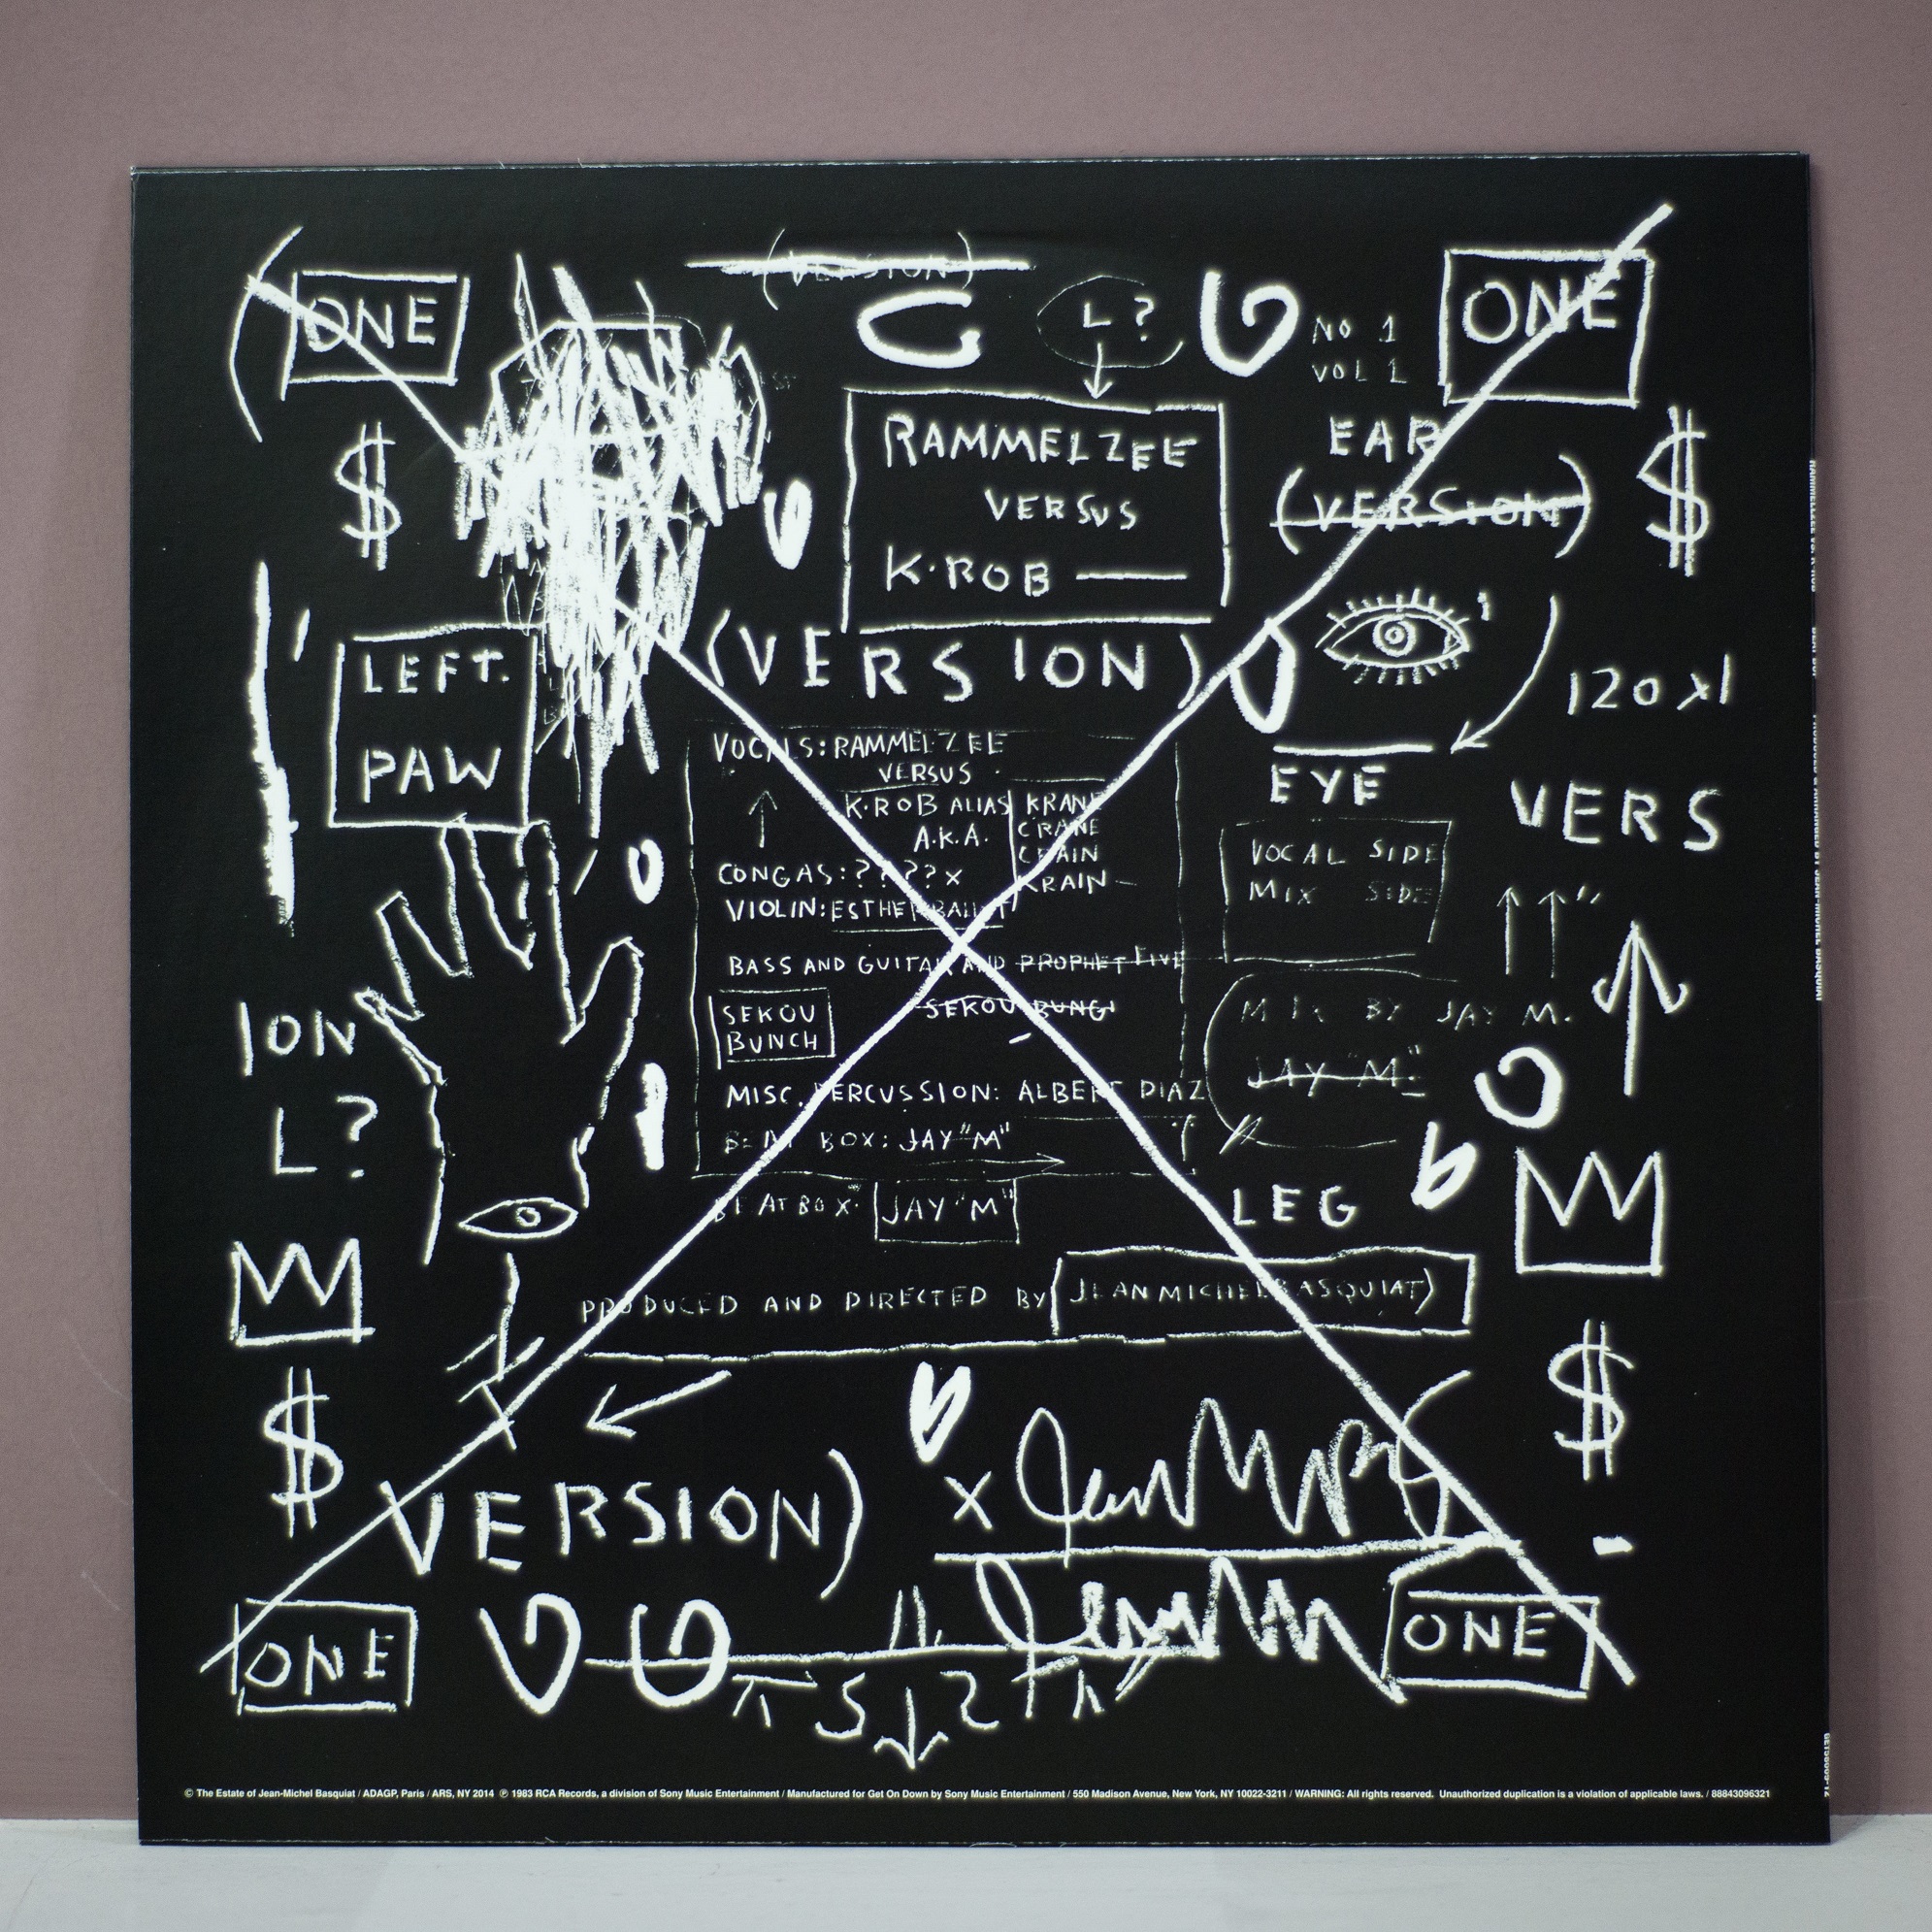 (ONE
(VERSION)
L?
NO 1
VOL 1
ONE
$
RAMMELZEE
VERSUS
K.ROB
EAR
(VERSION)
$
LEFT.
PAW
(VERSION)
120 x1
EYE
VERS
VOCALS: RAMMELZEE
VERSUS
K.ROB ALIAS KRANE
A.K.A. CRANE
CRAIN
KRAIN
CONGAS: ???? x
VIOLIN: ESTHER
BASS AND GUITAR AND PROPHET FIVE
SEKOU
BUNCH
SEKOU BUNGI
MISC. PERCUSSION: ALBERT DIAZ
BEAT BOX: JAY "M"
BEAT BOX: JAY "M"
VOCAL SIDE
MIX SIDE
MIX BY JAY M.
JAY "M."
ION
L?
LEG
PRODUCED AND DIRECTED BY (JEAN MICHEL BASQUIAT)
$
$
VERSION)
x
ONE
ONE
© The Estate of Jean-Michel Basquiat / ADAGP, Paris / ARS, NY 2014 ℗ 1983 RCA Records, a division of Sony Music Entertainment / Manufactured for Get On Down by Sony Music Entertainment / 550 Madison Avenue, New York, NY 10022-3211 / WARNING: All rights reserved. Unauthorized duplication is a violation of applicable laws. / 88843096321